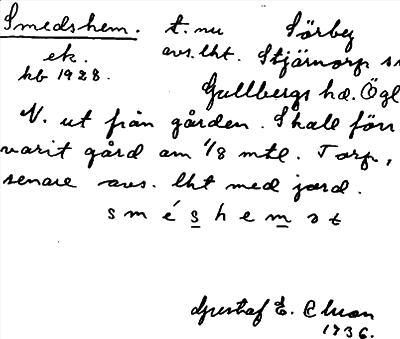 Smedshem. t. nu Sörby
ek. avs. lht. Stjärnorp sn
kb 1928. Gullbergs hd. Ögl
N. ut från gården. Skall förr
varit gård om 1/8 mtl. Torp,
senare avs. lht med jord.
s m é s h e m ə t
Gustaf E. Clson
1936.